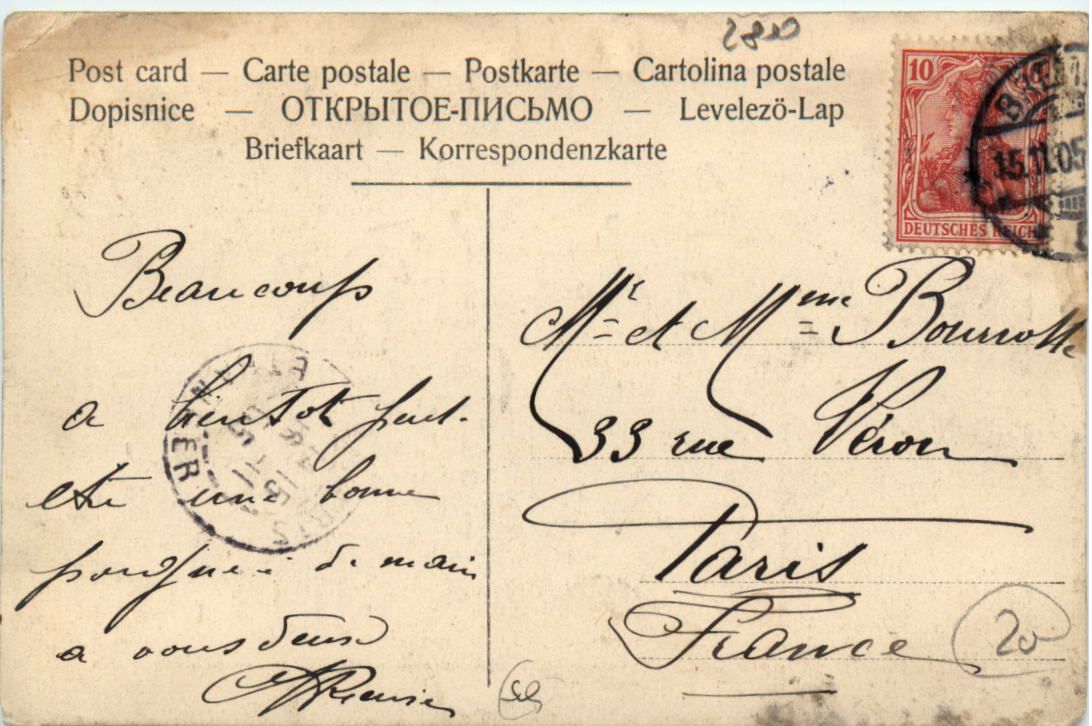 2800
Post card — Carte postale — Postkarte — Cartolina postale
Dopisnice — ОТКРЫТОЕ-ПИСЬМО — Levelezö-Lap
Briefkaart — Korrespondenzkarte
10
15.11.05
DEUTSCHES REICH
Beaucoup
a bientot peut-
etre une bonne
poignee de main
a vous deux
Mr et Mme Bourrotte
33 rue Véron
Paris
France
20